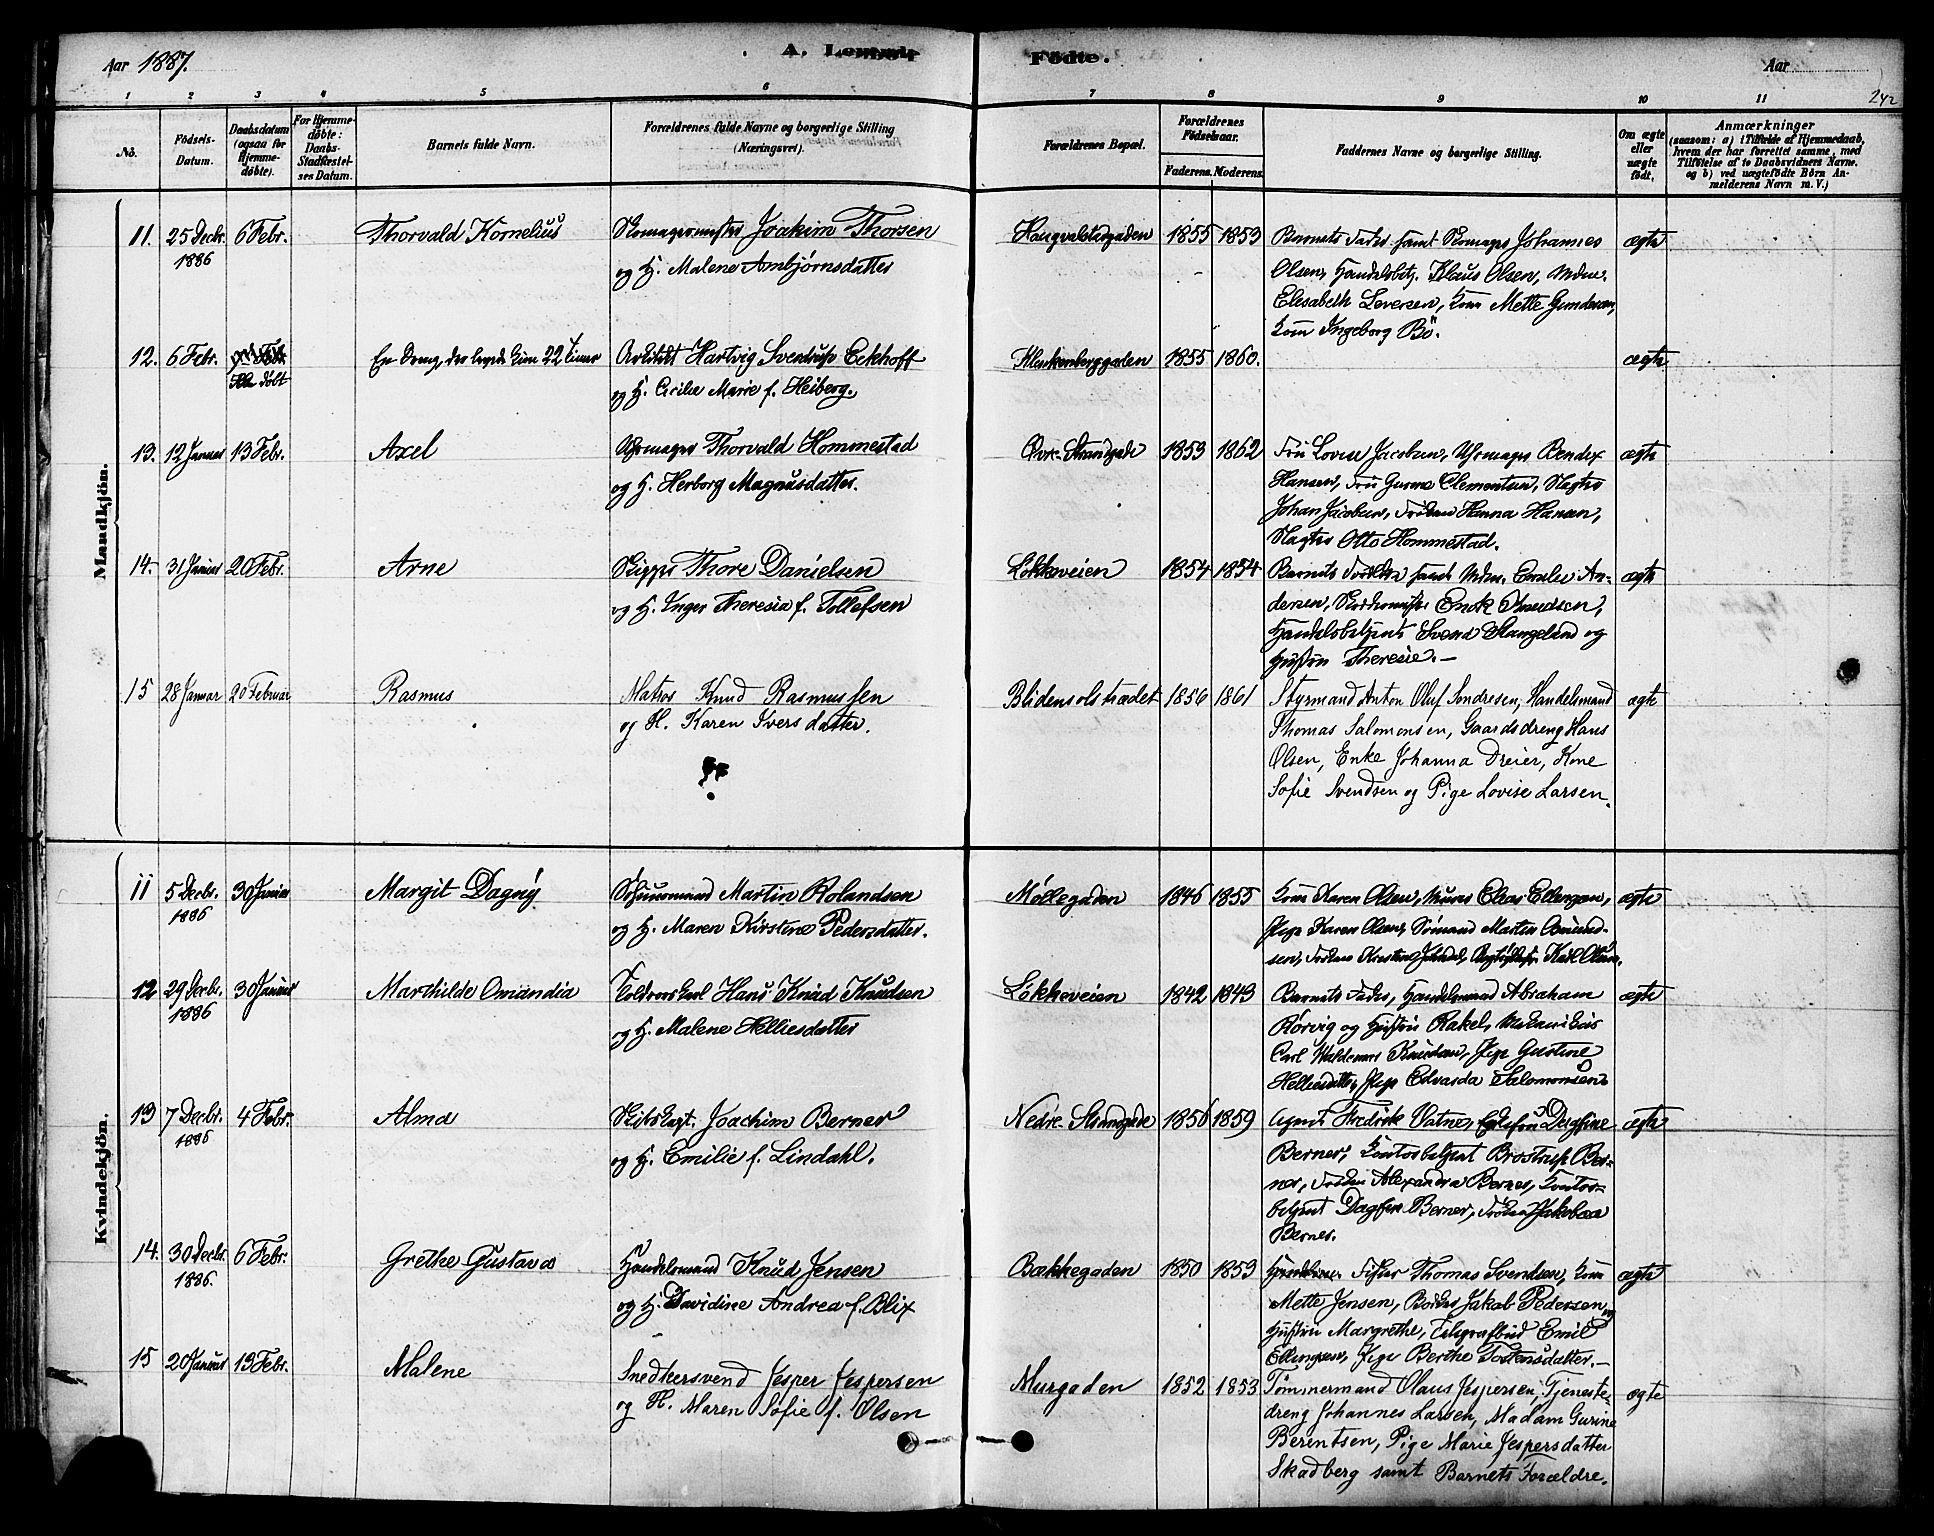 Aar 1887.
A. Levende Födte.
Aar
242
1 2 3 4 5 6 7 8 9 10 11
No.
Födsels-Datum.
Daabsdatum (ogsaa for Hjemme-döbte).
For Hjemme-döbte: Daabs-Stadfæstel-ses Datum.
Barnets fulde Navn.
Forældrenes fulde Navne og borgerlige Stilling (Næringsvei).
Forældrenes Bopæl.
Forældrenes Födselsaar.
Faderens. Moderens.
Faddernes Navne og borgerlige Stilling.
Om ægte eller uægte födt.
Anmærkninger
(saasom: a) i Tilfælde af Hjemmedaab, hvem der har forrettet samme, med Tilföielse af to Daabsvidners Navne, og b) ved uægtefödte Börn Anmelderens Navn m. V.)
Mandkjön.
11. 25 Decbr. 6 Febr. Thorvald Kornelius Skomagermester Joakim Thorsen Haugvaldstadgaden 1855 1853 Barnets Fader samt Skomager Johannes ægte
1886 og H. Malene Ambjørnsdatter Olsen, Handelsbetj. Klaus Olsen, Mdme.
Elisabeth Seversen, Kone Mette Gundersen,
Kone Ingeborg Bö.
12. 6 Febr. døbt En Dreng, der levede kun 22 Timer Arkitekt Hartvig Sverdrup Eckhoff Klinkenberggaden 1855 1860. ægte
og H. Cicilie Marie f. Heiberg.
13. 12 Januar 13 Febr. Axel Uhrmager Thorvald Hommestad Øvre Strandgade 1859 1862 Fru Lovise Jacobsen, Uhrmager Bendix ægte
og H. Herborg Magnusdatter. Hansen, Fru Clementsen, Slagter
Johan Jacobsen, Frøken Hanna Hansen,
Slagter Otto Hommestad.
14. 31 Januar 20 Febr. Arne Skipper Thore Danielsen Løkkeveien 1854 1854 Barnets Forældre samt Mdm. Emilie An- ægte
og H. Inger Theresia f. Tollefsen dersen, Enok Knudsen,
Handelsbetjent Svend Stangeland og
Hustru Theresie.
15 28 Januar 20 Februar Rasmus Matros Knud Rasmussen Blidensolstrædet 1856 1861 Styrmand Anton Oluf Sondresen, Handelsmand ægte
og H. Karen Iversdatter. Thomas Salomonsen, Gaardsdreng Hans
Olsen, Enke Johanna Dreier, Kone
Sofie Svendsen og Pige Lovise Larsen.
Kvindekjön.
11 5 Decbr. 30 Januar Margit Dagny Martin Rolandsen Møllegaden 1846 1855 Kone Karen Olsen, Murer Elias Ellingsen, ægte
1886 og H. Maren Kirstine Pedersdatter. Pige Karen Olsen, Sømand Martin Osmund-
sen, Frøken Karl Olsen.
12 29 Decbr. 30 Januar Marthilde Omandia Hans Knud Knudsen Løkkeveien 1842 1843 Barnets Fader, Handelsmand Abraham ægte
1886 og H. Malene Helliesdatter Rörvig og Hustru Rakel,
Carl Waldemar Knudsen, Pige Gustine
Helliesdatter, Pige Edvarda Salomonsen
13 7 Decbr. 4 Febr. Alma Skibskapt. Joachim Berner Nedre Strandgade 1856 1859 Agent Fredrik Vatne, Dagfine ægte
1886 og H. Emilie f. Lindahl. Berner, Kontorbetjent Brostrup Ber-
ner, Frøken Alexandra Berner, Kontor-
betjent Dagfin Berner, Frøken Jakobea
Berner.
14. 30 Decbr. 6 Febr. Grethe Gustava Handelsmand Knud Jensen Bakkegaden 1850 1853 Fisker Thomas Svendsen, Kone ægte
1886. og H. Davidine Andrea f. Blix Mette Jensen, Jakob Pedersen og
Hustru Margrethe, Telegrafbud Emil
Ellingsen, Pige Berthe Tostensdatter.
15 20 Januar 13 Febr. Malene Snedkersvend Jesper Jespersen Murgaden 1852 1853 Tømmermand Olaus Jespersen, Tjeneste- ægte
og H. Maren Sofie f. Olsen dreng Johannes Larsen, Madam Gurine
Berentsen, Pige Marie Jespersdatter
Skadberg samt Barnets Forældre.